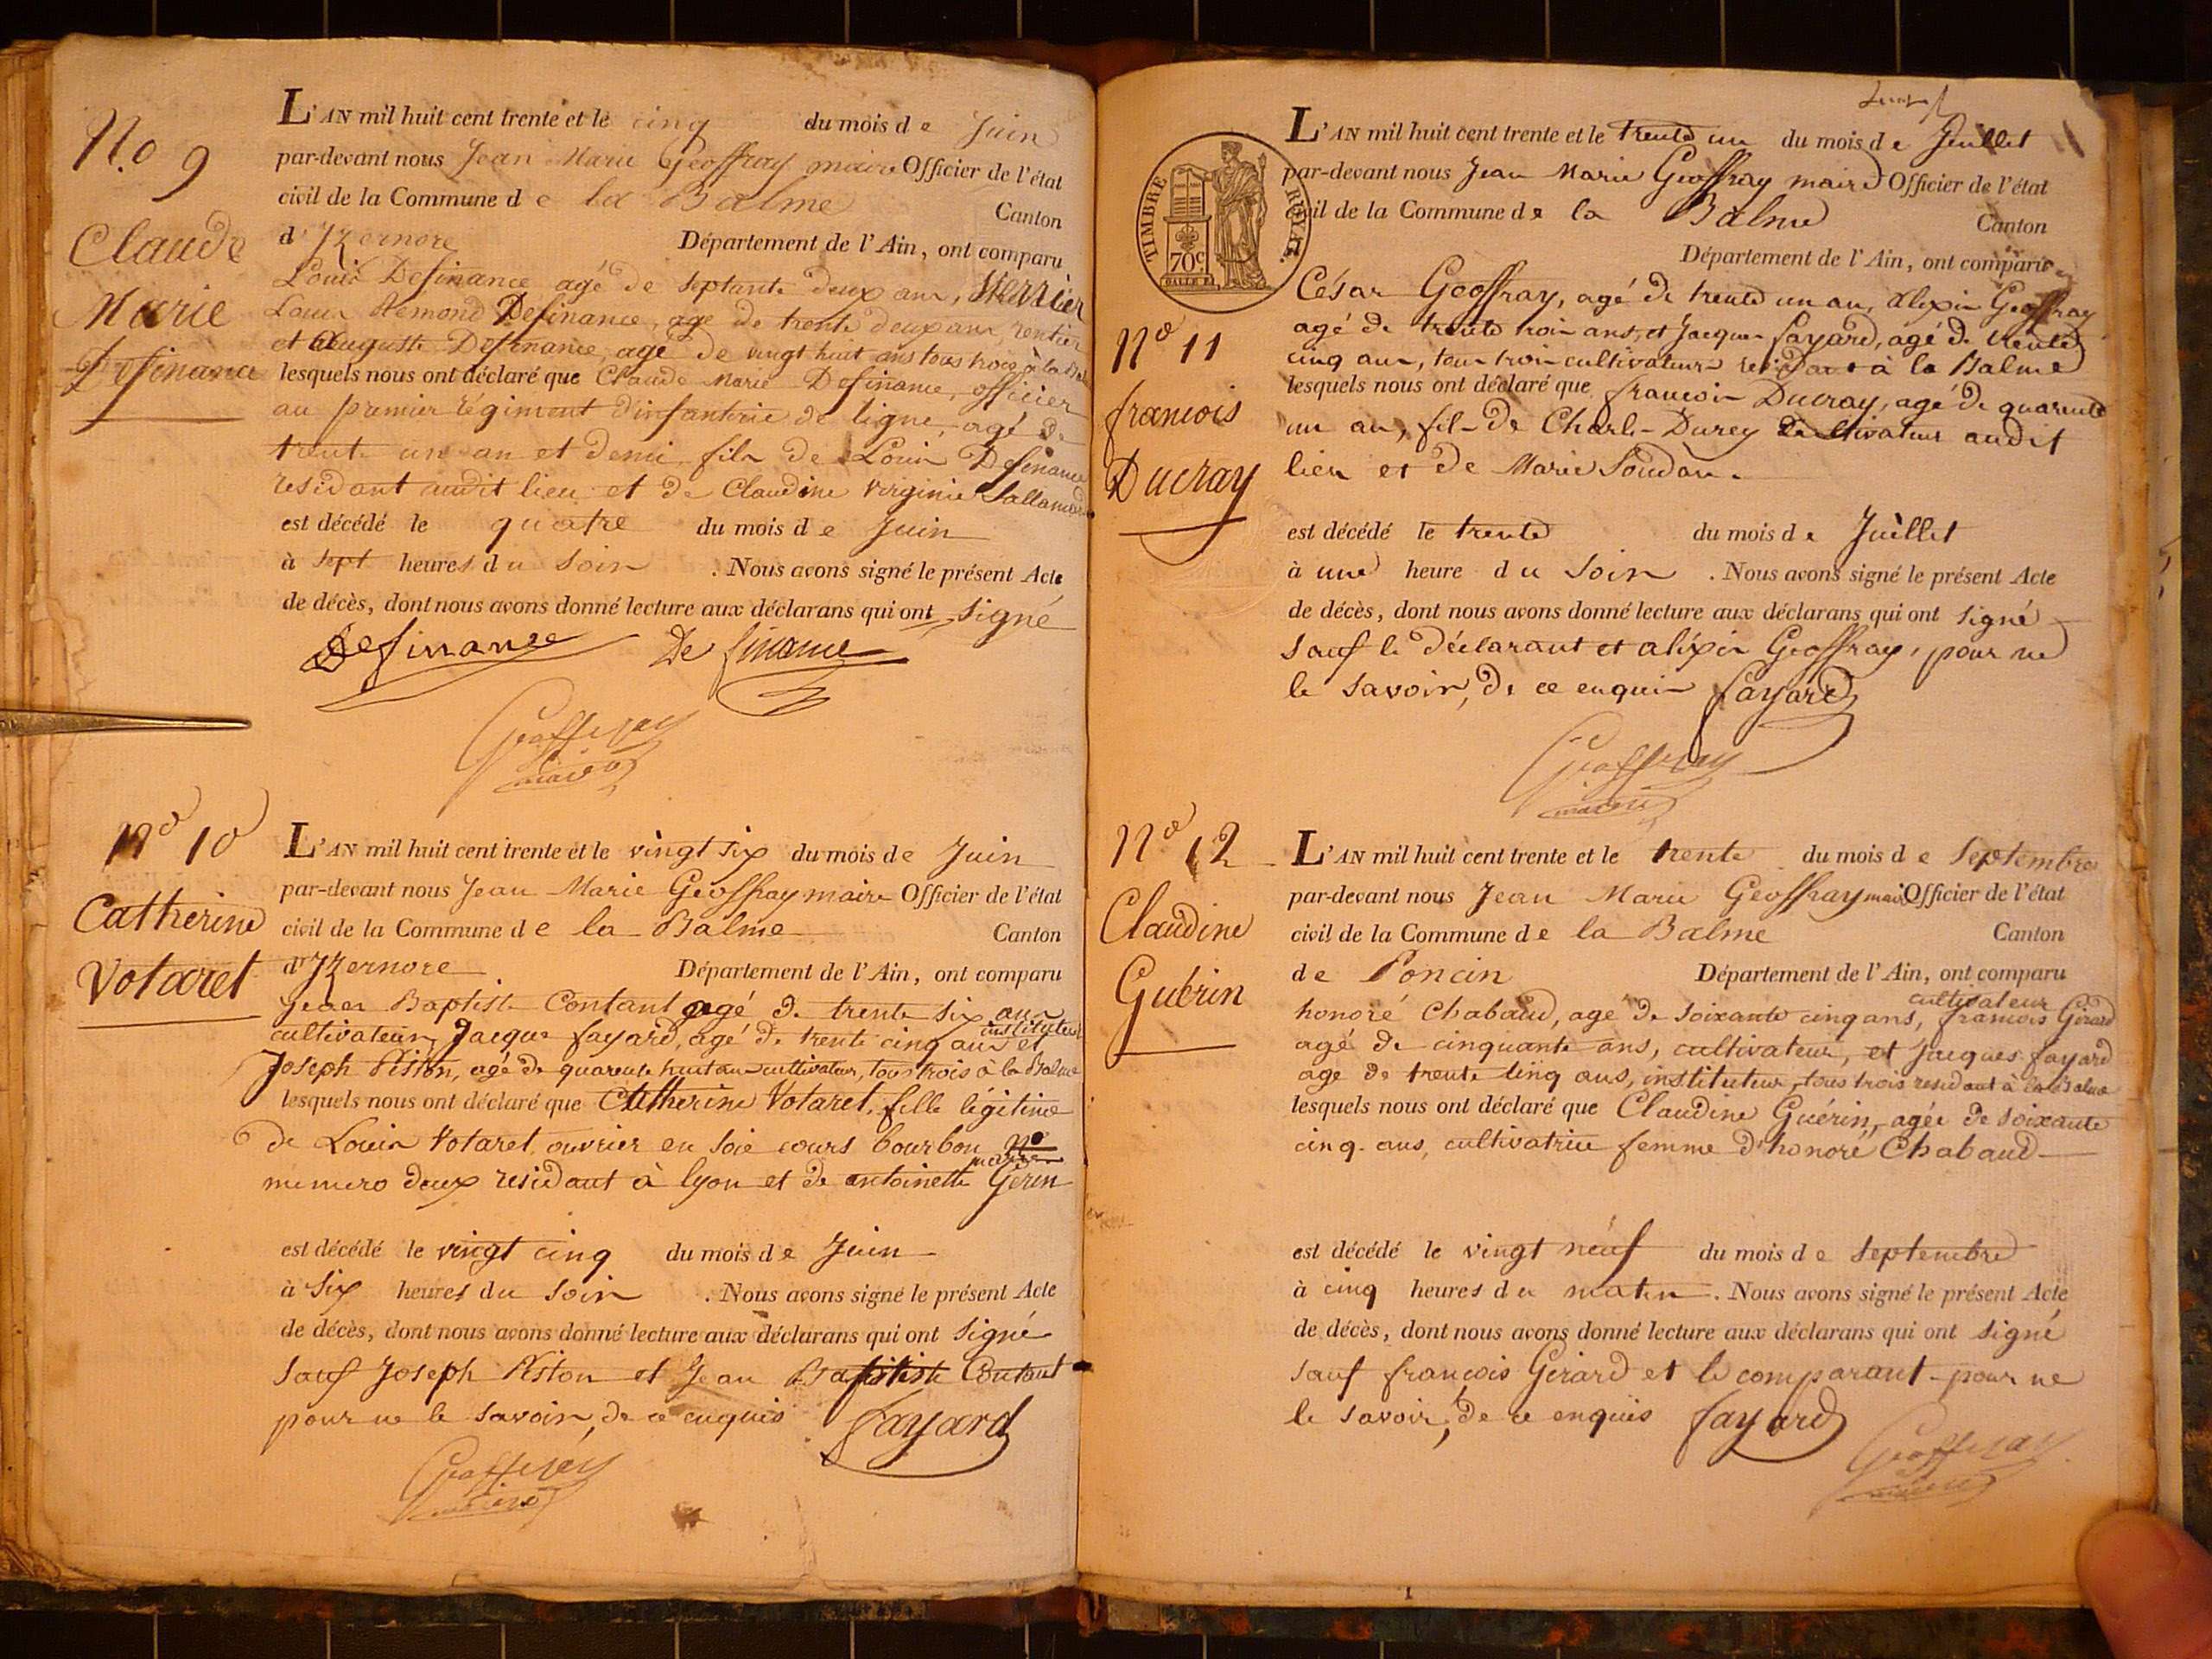 No 9
Claude
Marie
Definance
L'AN mil huit cent trente et le cinq du mois de Juin
par-devant nous Jean Marie Geoffray maire Officier de l'état
civil de la Commune de la Balme Canton
d'Izernore Département de l'Ain, ont comparu
Louis Definance agé de septante deux ans,
Louis Rémond Definance, age de trente deux ans, rentier
et Auguste Definance, agé de vingt huit ans tous trois à la
lesquels nous ont déclaré que Claude Marie Definance, officier
au premier régiment d'infanterie de ligne, agé de
trente un an et demi fils de Louis Definance
residant audit lieu et de Claudine Virginie
est décédé le quatre du mois de Juin
à sept heures du soir . Nous avons signé le présent Acte
de décès, dont nous avons donné lecture aux déclarans qui ont signé
Definance De finance
Geoffray
maire
No 10
Catherine
Votaret
L'AN mil huit cent trente et le vingt six du mois de Juin
par-devant nous Jean Marie Geoffray maire Officier de l'état
civil de la Commune de la Balme Canton
d'Izernore Département de l'Ain, ont comparu
Jean Baptiste Contant agé de trente six ans
cultivateur, Jacque fayard, agé de trente cinq ans instituteur et
Joseph Piston, agé de quarente huit ans cultivateur, tous trois à la Balme
lesquels nous ont déclaré que Catherine Votaret, fille légitime
de Louis Votaret, ouvrier en soie cours bourbon no
numero deux residant à lyon et de antoinette Gerin
est décédé le vingt cinq du mois de Juin
à six heures du soir . Nous avons signé le présent Acte
de décès, dont nous avons donné lecture aux déclarans qui ont signé
sauf Joseph Piston et Jean Baptiste Contant
pour ne le savoir, de ce enquis fayard
Geoffray
maire
11
TIMBRE ROYAL
70c
L'AN mil huit cent trente et le trente un du mois de Juillet
par-devant nous Jean Marie Geoffray maire Officier de l'état
civil de la Commune de la Balme Canton
Département de l'Ain, ont comparu
No 11
francois
Ducray
César Geoffray, agé de trente un an, alexis Geoffray
agé de trente trois ans, et Jacques fayard, agé de trente
cinq ans, tous trois cultivateurs residant à la Balme
lesquels nous ont déclaré que francois Ducray, agé de quarente
un an, fils de Charle Durey cultivateur audit
lieu et de Marie Soudan.
est décédé le trente du mois de Juillet
à une heure du soir . Nous avons signé le présent Acte
de décès, dont nous avons donné lecture aux déclarans qui ont signé
sauf le déclarant et aléxis Geoffray, pour ne
le savoir, de ce enquis fayard
Geoffray
maire
No 12
Claudine
Guérin
L'AN mil huit cent trente et le trente du mois de septembre
par-devant nous Jean Marie Geoffray maire Officier de l'état
civil de la Commune de la Balme Canton
de Poncin Département de l'Ain, ont comparu
honoré Chabaud, agé de soixante cinq ans, cultivateur francois Girard
agé de cinquante ans, cultivateur, et Jacques fayard
age de trente cinq ans, instituteur, tous trois residant à la Balme
lesquels nous ont déclaré que Claudine Guérin, agée de soixante
cinq ans, cultivatrice femme d'honoré Chabaud
est décédé le vingt neuf du mois de septembre
à cinq heures du matin . Nous avons signé le présent Acte
de décès, dont nous avons donné lecture aux déclarans qui ont signé
sauf françois Girard et le comparant pour ne
le savoir, de ce enquis fayard
Geoffray
maire